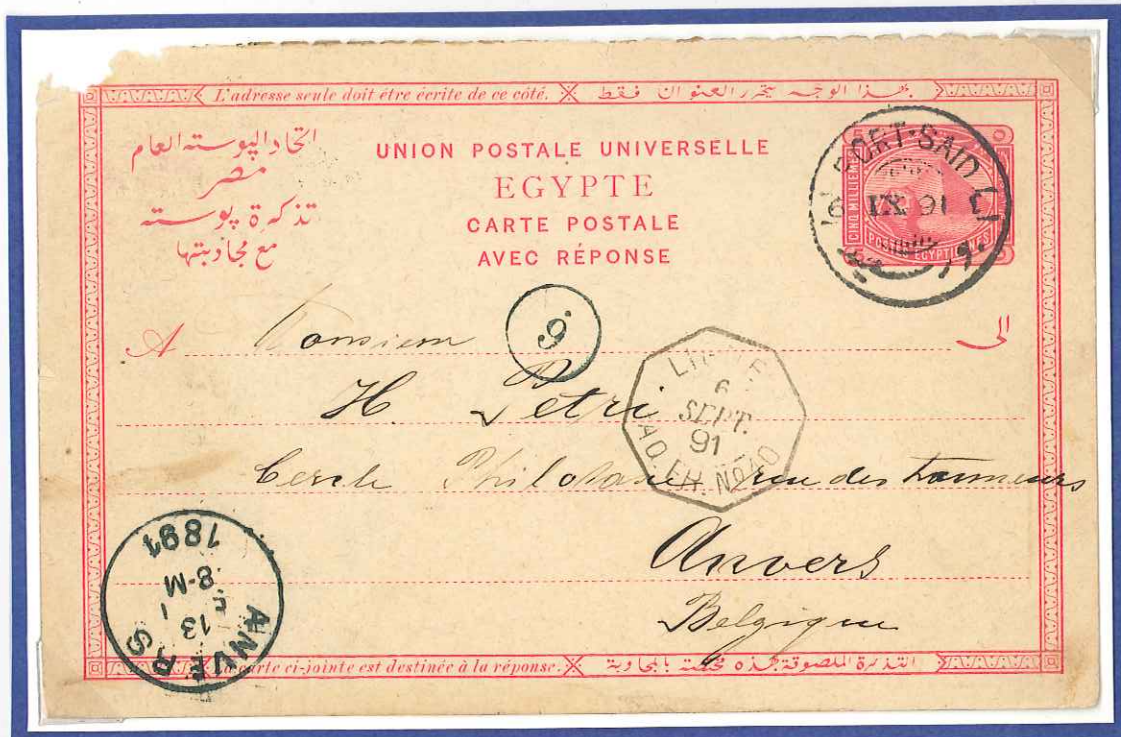 L'adresse seule doit être écrite de ce côté. بهذا الوجه يتحرر العنوان فقط
اتحاد البوسته العام
مصر
تذكرة بوسته
مع مجاوبتها
UNION POSTALE UNIVERSELLE
EGYPTE
CARTE POSTALE
AVEC RÉPONSE
PORT-SAID
IX 91
CINQ MILLIEMES
6
A Monsieur الى
H. Petri
Cercle rue des tanneurs
Anvers
Belgique
LIGNE
6
SEPT.
91
PAQ. FR. No 10
ANVERS
13
8-M
1891
La carte ci-jointe est destinée à la réponse. التذكرة الملصوقة بهذه مختصة بالمجاوبة